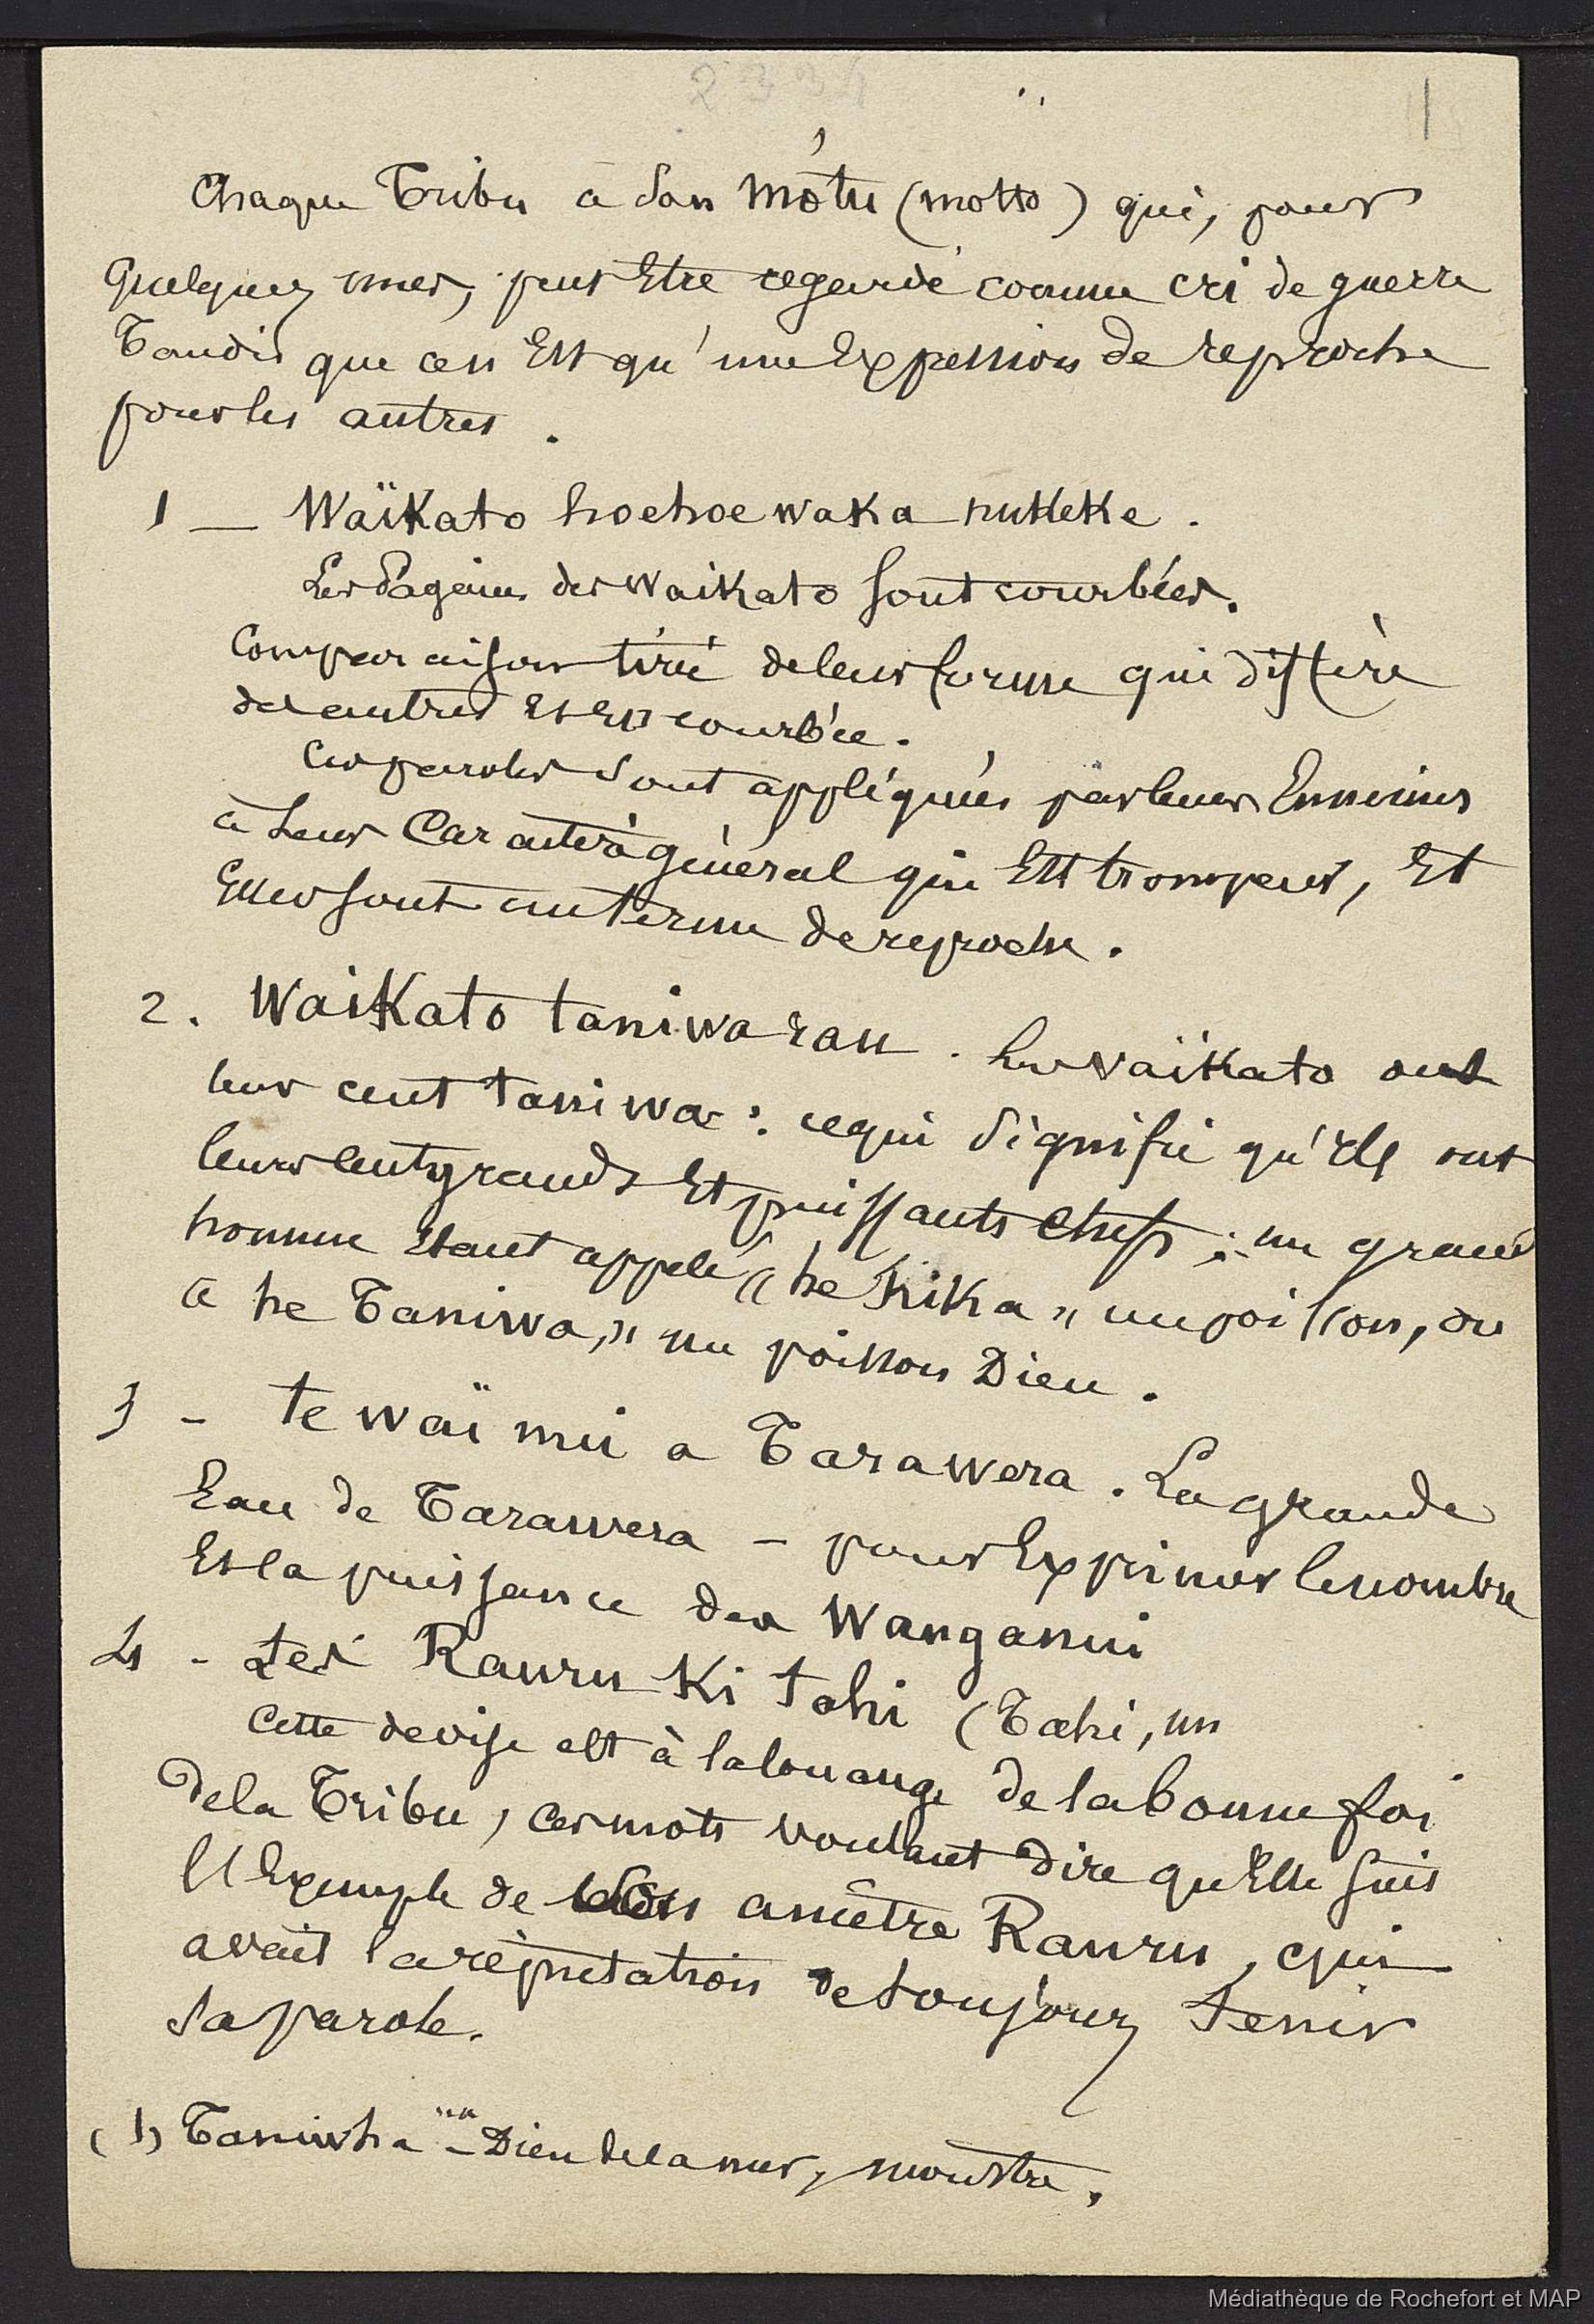 2334
1
Chaque Tribu a son môtu (motto) qui, pour
quelques unes, peut Etre regardé comme cri de guerre
Tandis que ce n'Est qu'une Expression de reproche
pour les autres.
1 — Waïkato hoehoe waka nukeke.
Les Pagaies des Waikato sont courbées.
Comparaison tirée de leur forme qui diffère
des autres Et En courbée.
Ces paroles sont appliquées par leurs Ennemis
à leur Caractère général qui Est trompeur, Et
Elles sont un terme de reproche.
2. Waikato taniwa rau. Les Waïkato ont
leur cent taniwa : ce qui signifie qu'Ils ont
leurs cent grands Et puissants Chefs ; un grand
homme Etant appelé "he hika" un poisson, ou
a he Taniwa," un poisson Dieu.
3 - te waï nui a Tarawera. La grande
Eau de Tarawera - pour Exprimer le nombre
Et la puissance des Wanganui
4 - Les Rauru Ki tahi (Tahi, un
Cette devise est à la louange de la bonne foi
de la Tribu, ces mots voulant dire qu'Elle suit
l'Exemple de son ancêtre Rauru, qui
avait la réputation de toujours tenir
sa parole.
(1) Taniwha - Dieu de la mer, monstre.
Médiathèque de Rochefort et MAP